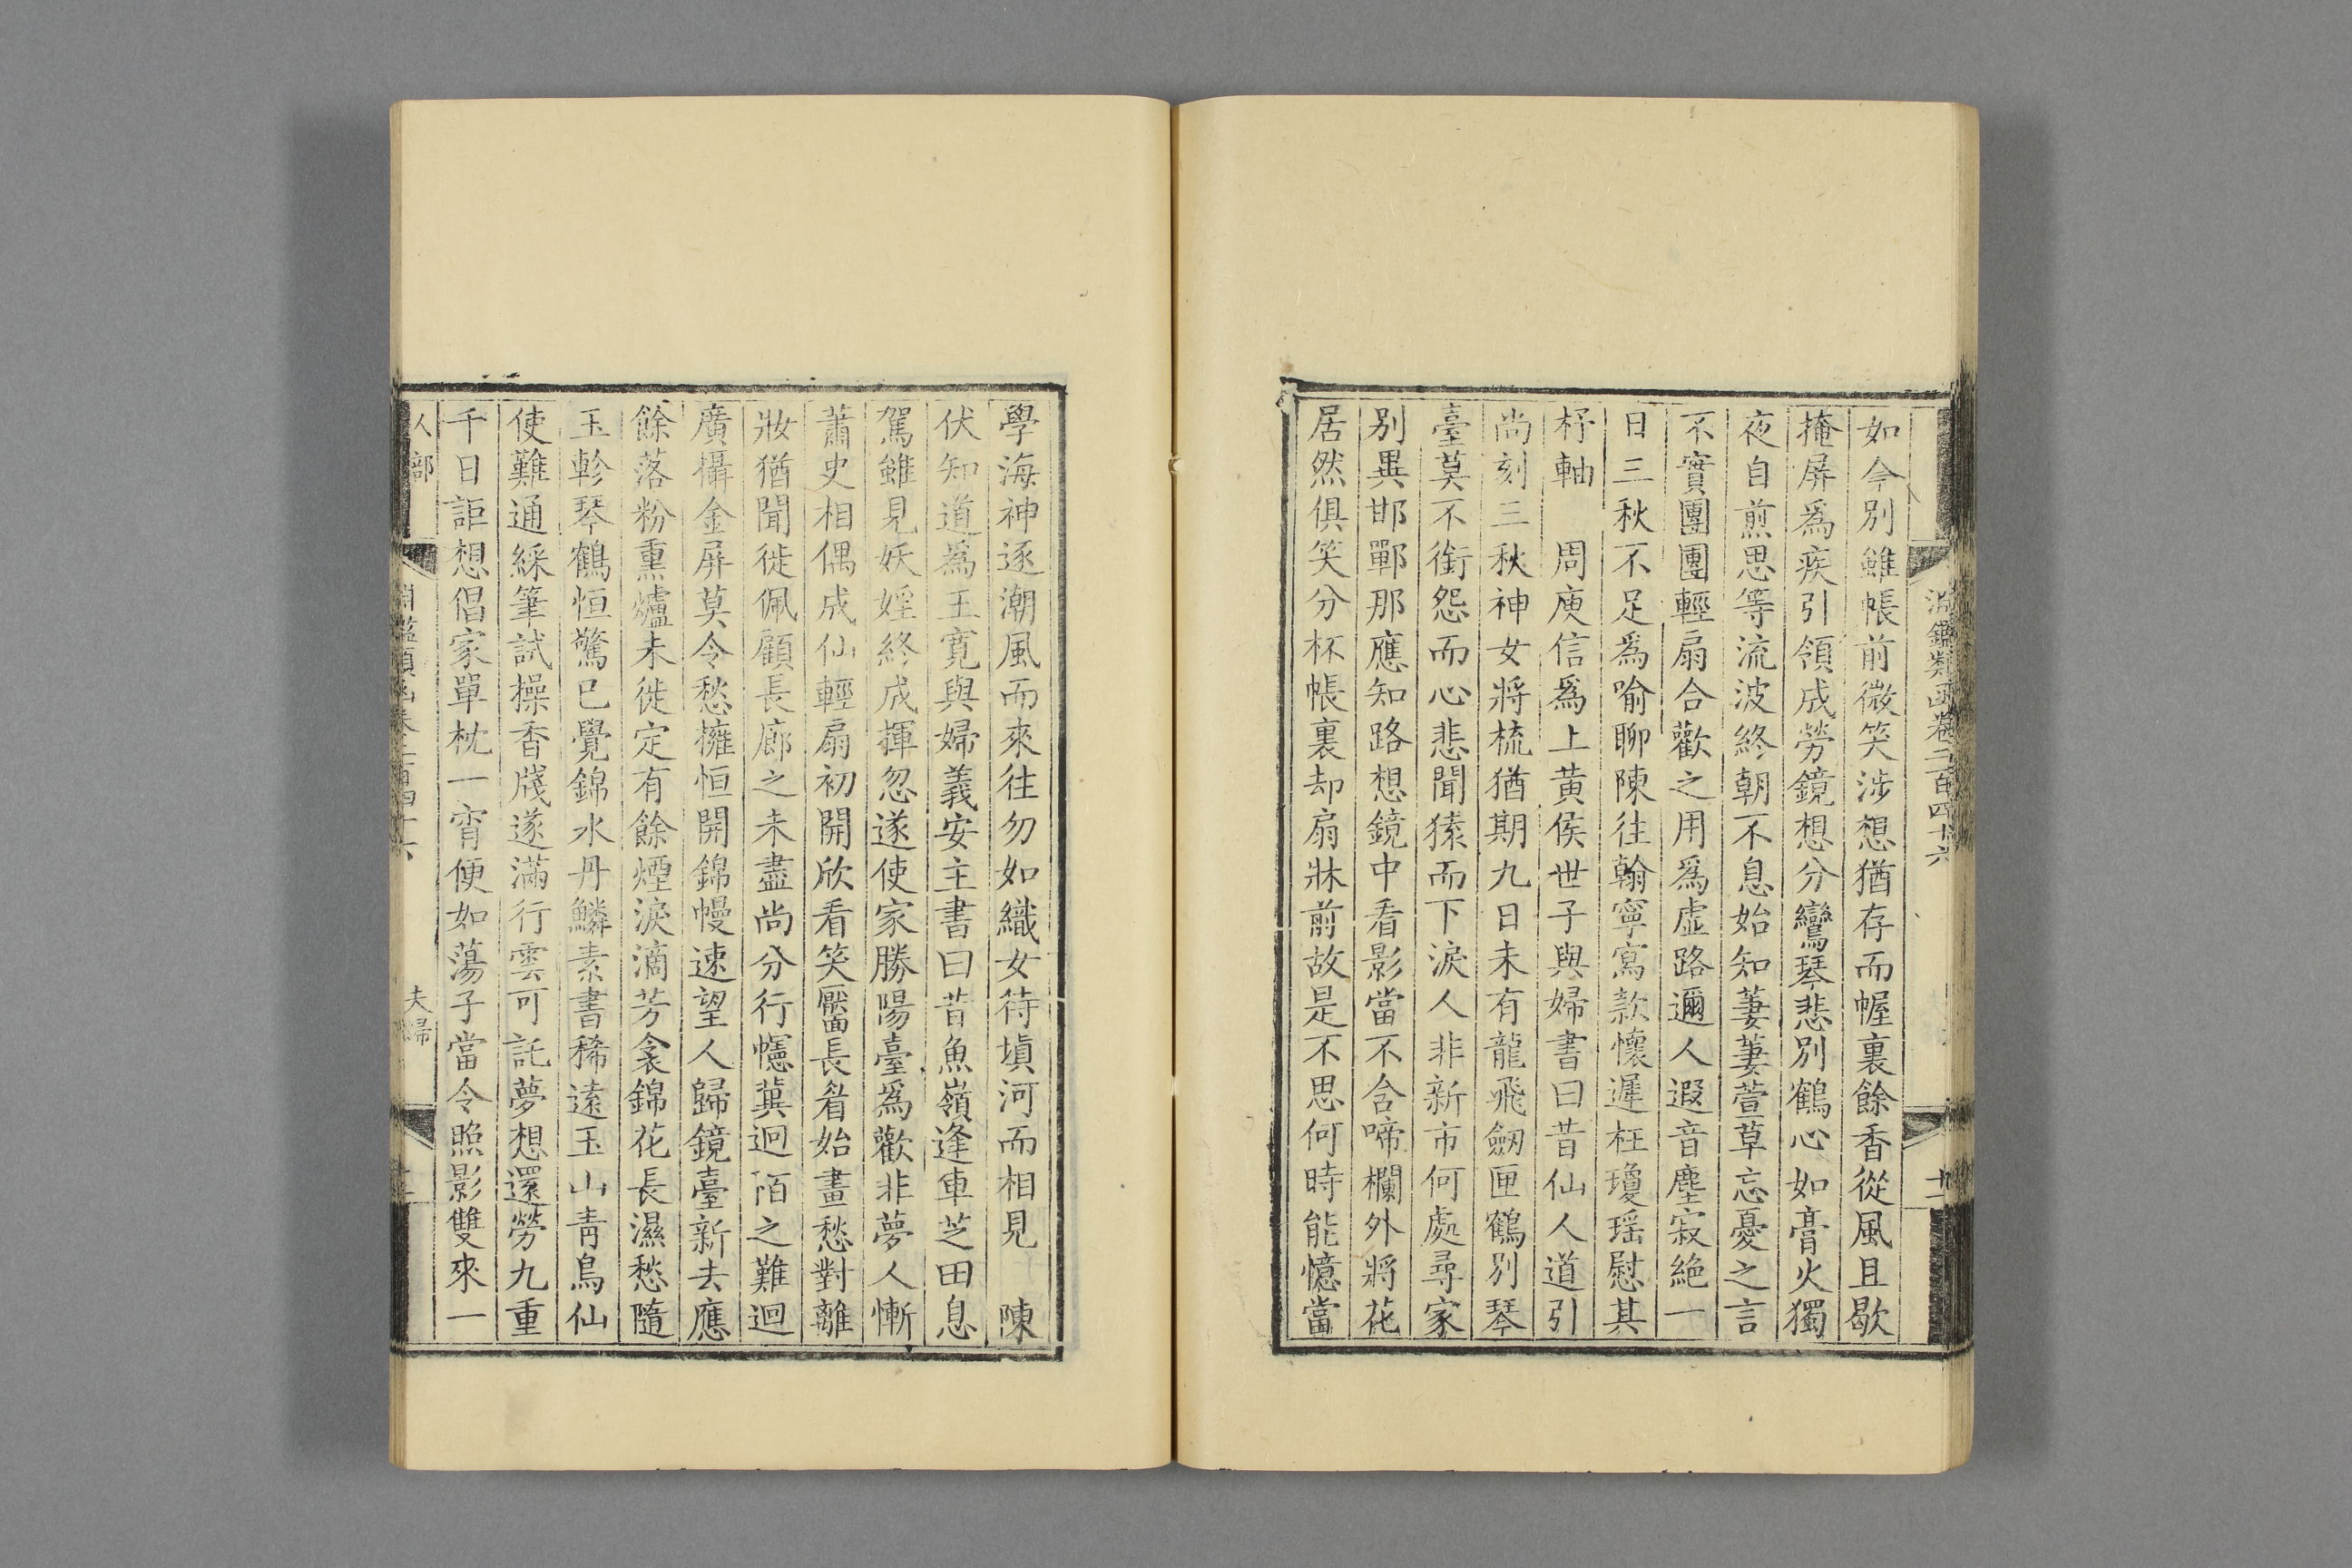 淵鑑類函卷二百四十六
十一
如今別雖帳前微笑涉想猶存而幄裏餘香從風且歇
掩屏爲疾引領成勞鏡想分鸞琴悲別鶴心如膏火獨
夜自煎思等流波終朝不息始知萋萋萱草忘憂之言
不實團團輕扇合歡之用爲虛路邇人遐音塵寂絶一
日三秋不足爲喻聊陳往翰寧寫款懷遲枉瓊瑶慰其
杼軸 周庾信爲上黄侯世子與婦書曰昔仙人道引
尚刻三秋神女將梳猶期九日未有龍飛劒匣鶴別琴
臺莫不銜怨而心悲聞猿而下淚人非新市何處尋家
別異邯鄲那應知路想鏡中看影當不含啼欄外將花
居然俱笑分杯帳裏却扇牀前故是不思何時能憶當
學海神逐潮風而來往勿如織女待塡河而相見 陳
伏知道爲王寛與婦義安主書曰昔魚嶺逢車芝田息
駕雖見妖婬終成揮忽遂使家勝陽臺爲歡非夢人慚
蕭史相偶成仙輕扇初開欣看笑靨長眉始畫愁對離
妝猶聞徙佩顧長廊之未盡尚分行幰冀迴陌之難迴
廣攝金屏莫令愁擁恒開錦幔速望人歸鏡臺新去應
餘落粉熏爐未徙定有餘煙淚滴芳衾錦花長濕愁隨
玉軫琴鶴恒驚已覺錦水丹鱗素書稀遠玉山青鳥仙
使難通綵筆試操香牋遂滿行雲可託夢想還勞九重
千日詎想倡家單枕一宵便如蕩子當令照影雙來一
人部
淵鑑類函卷二百四十六
夫婦